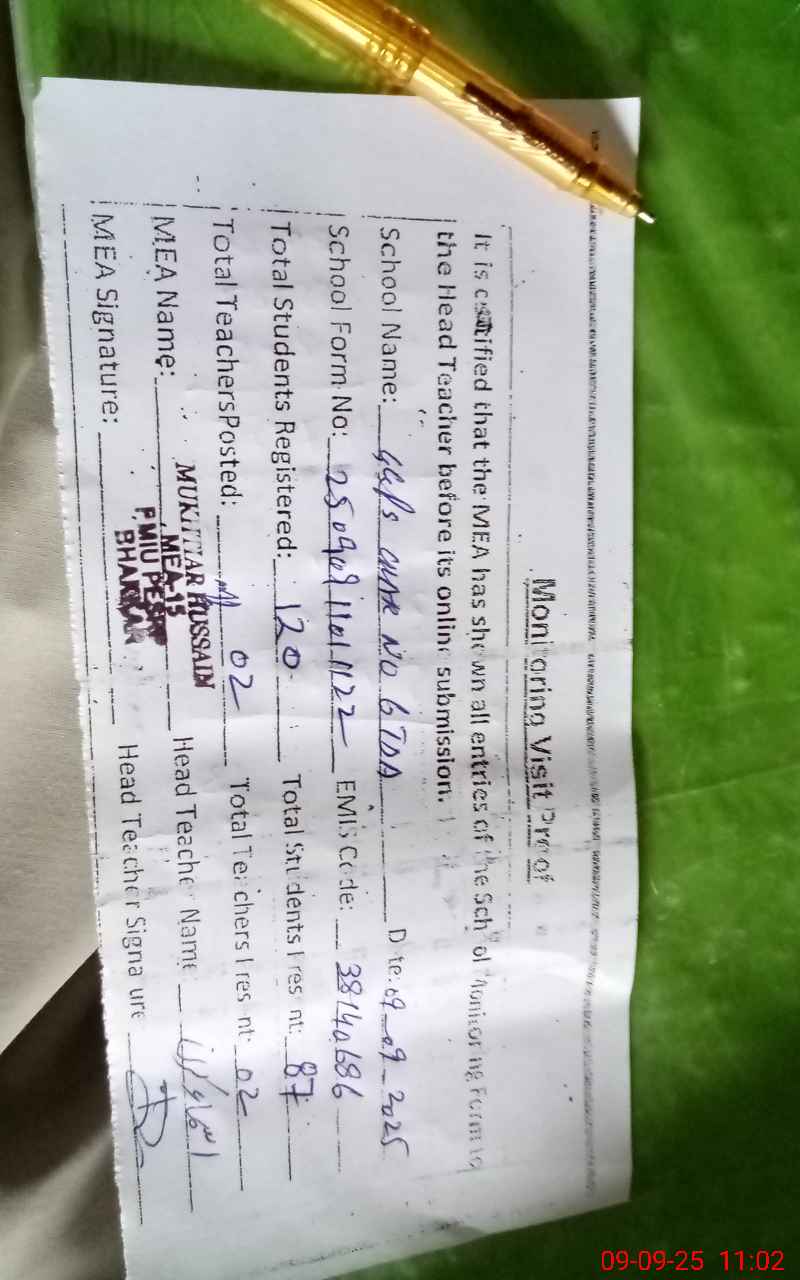 Monitoring Visit Proof
It is certified that the MEA has shown all entries of the School Monitoring Form to
the Head Teacher before its online submission.
School Name: NO 6 TDA Date: 09-09-2025
School Form No: EMIS Code: 38140686
Total Students Registered: 120 Total Students Present: 87
Total Teachers Posted: 02 Total Teachers Present: 02
MEA Name: MUKHTIAR HUSSAIN Head Teacher Name
MEA-15
PMIU PESRP
BHAKKAR
MEA Signature: Head Teacher Signature
09-09-25 11:02